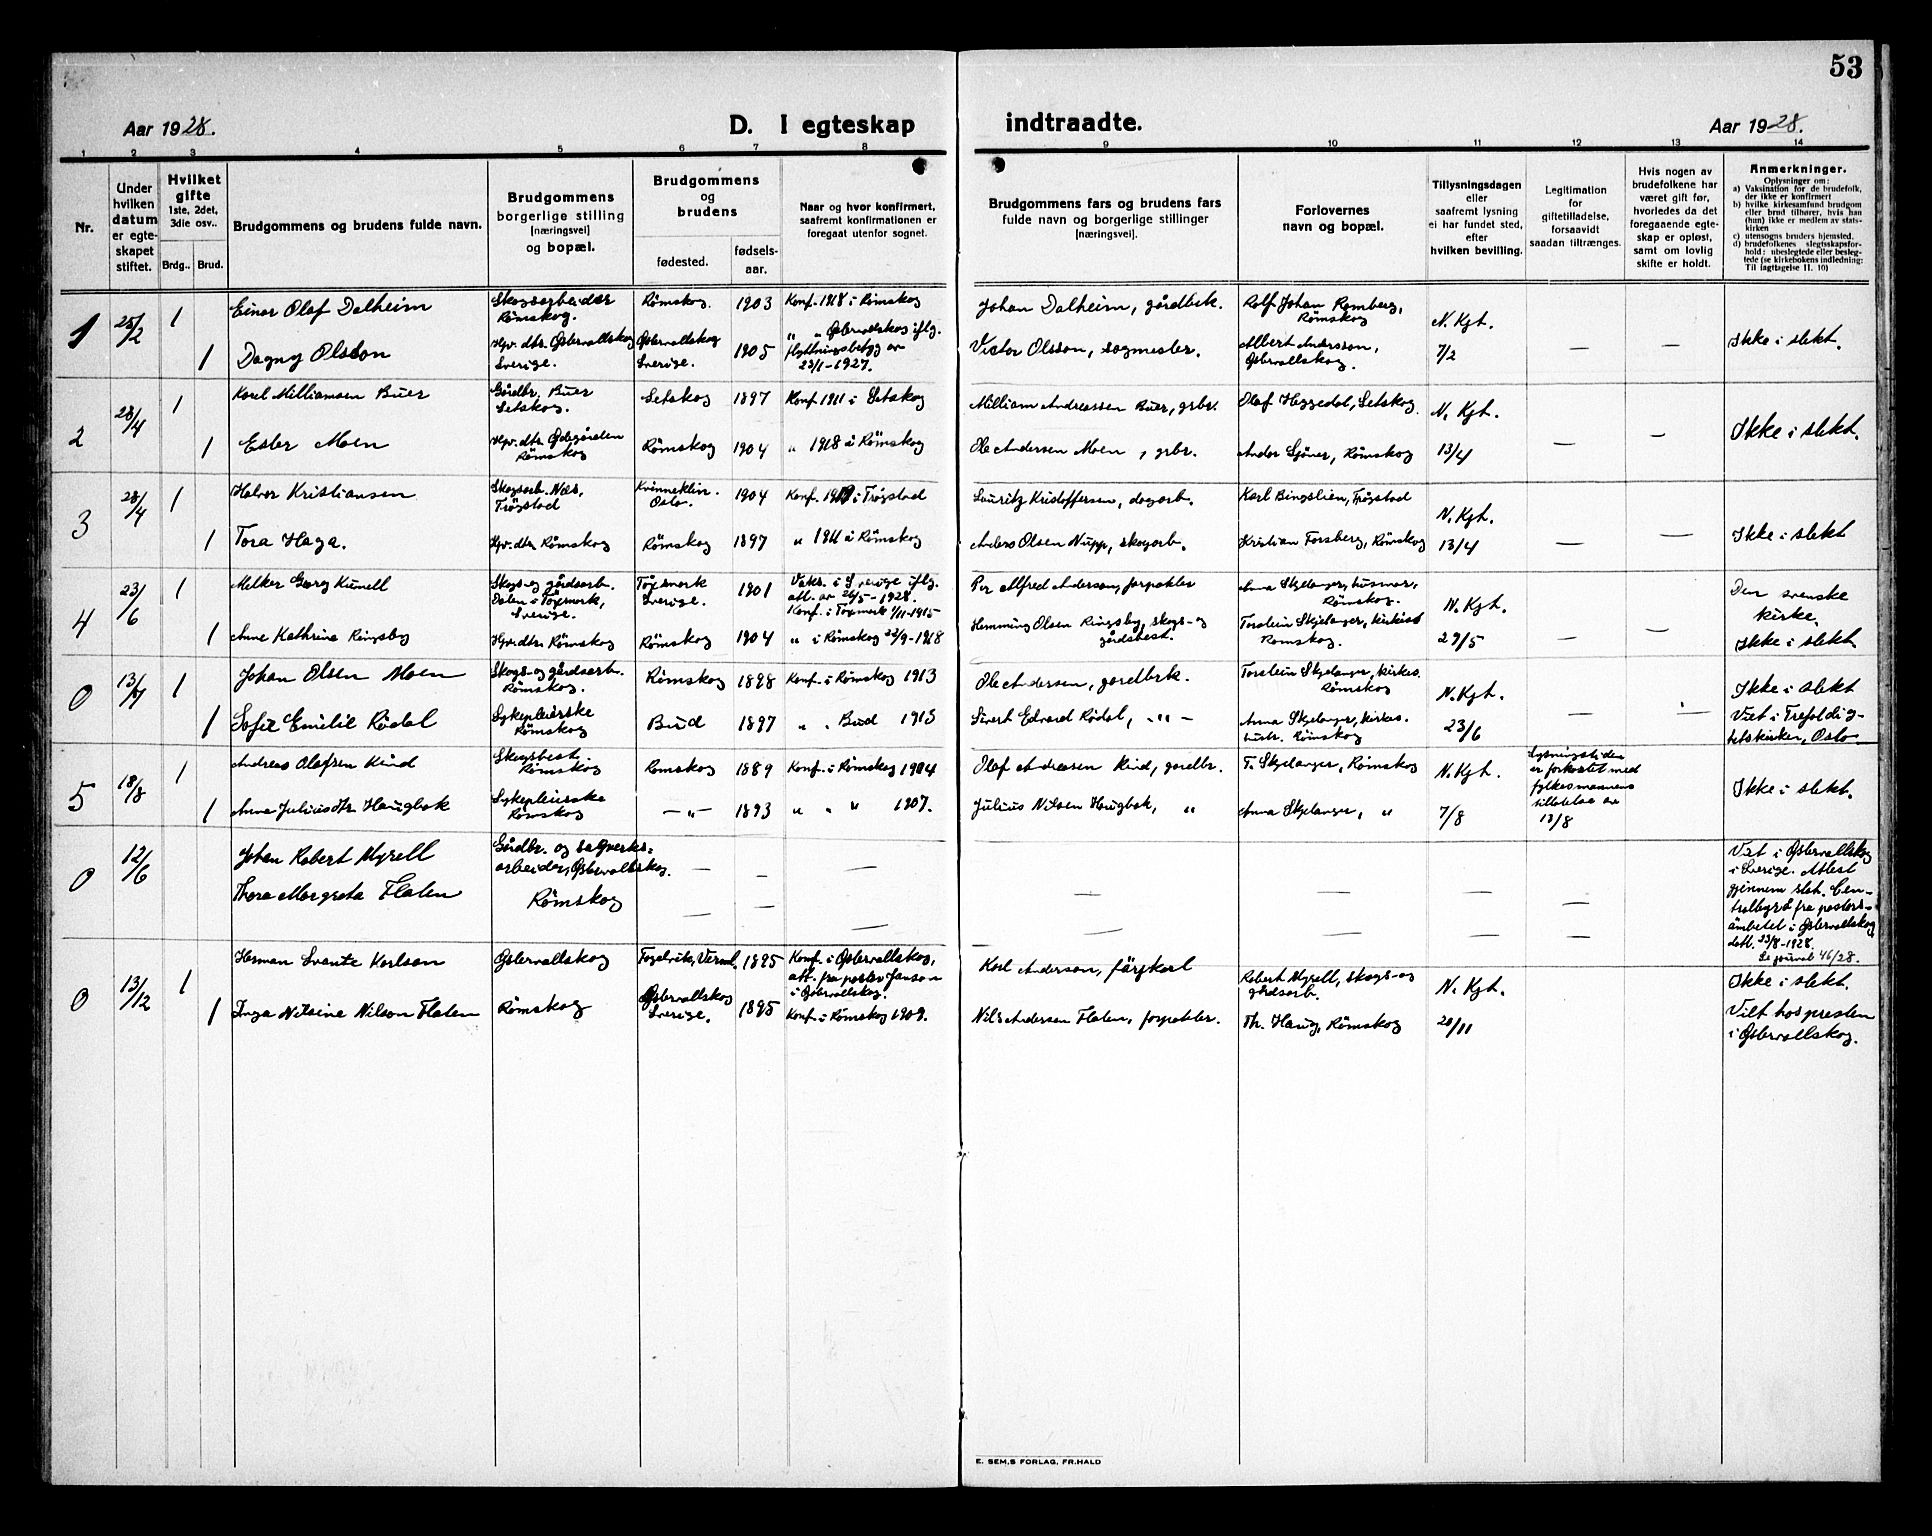 53
Aar 1928. D. I egteskap indtraadte. Aar 1928.
1 2 3 4 5 6 7 8 9 10 11 12 13 14
Nr.
Under
hvilken
datum
er egte-
skapet
stiftet.
Hvilket
gifte
1ste, 2det,
3die osv..
Brdg.. Brud.
Brudgommens og brudens fulde navn.
Brudgommens
borgerlige stilling
[næringsvei]
og bopæl.
Brudgommens
og
brudens
fødested.
fødsels-
aar.
Naar og hvor konfirmert,
saafremt konfirmationen er
foregaat utenfor sognet.
Brudgommens fars og brudens fars
fulde navn og borgerlige stillinger
[næringsvei].
Forlovernes
navn og bopæl.
Tillysningsdagen
eller
saafremt lysning
ei har fundet sted,
efter
hvilken bevilling.
Legitimation
for
giftetilladelse,
forsaavidt
saadan tiltrænges.
Hvis nogen av
brudefolkene har
været gift før,
hvorledes da det
foregaaende egte-
skap er opløst,
samt om lovlig
skifte er holdt.
Anmerkninger.
Oplysninger om:
a) Vaksination for de brudefolk,
der ikke er konfirmert
b) hvilke kirkesamfund brudgom
eller brud tilhører, hvis han
(hun) ikke er medlem av stats-
kirken
c) utensogns bruders hjemsted.
d) brudefolkenes slegtsskapsfor-
hold: ubeslegtede eller besleg-
tede (se kirkebokens indledning:
Til iagttagelse II. 10)
1
25/2
1
Einar Olaf Dalheim
Skogsarbeider
Römskog.
Römskog.
1903
Konf. 1918 i Römskog
Johan Dalheim, gårdbrk.
Rolf Johan Romberg,
Römskog
N. Kgt.
1
Dagny Olsson
Hpv. dtr. Østervallskog
Sverige.
Østervallskog
Sverige.
1905
" " Østervallskog iflg.
flyttningsbetyg av
23/1-1927.
Victor Olsson, sagmester.
Albert Andersson,
Østervallskog.
7/2
—
—
Ikke i slekt.
2
28/4
1
Karel Milliamsen Buer
Gårdbr. Buer
Setskog.
Setskog
1897
Konf. 1911 i Setskog
Milliam Andreassen Buer, grbr.
Olaf Heggedal, Setskog.
N. Kgt.
1
Ester Moen
Hpv. dtr. Ødegården
Römskog
Römskog
1904
" 1918 i Römskog
Ole Andersen Moen, grbr.
Andor Sjöner, Römskog
13/4
—
—
Ikke i slekt.
3
28/4
1
Halvor Kristiansen
Skogsarb. Næs,
Trögstad
Kvinneklin.
Oslo.
1904
Konf. 1919 i Trögstad
Lauritz Kristoffersen, dagarb.
Karl Bingslien, Trögstad
N. Kgt.
1
Tora Haga.
Hpv. dtr. Römskog
Römskog
1897
" 1911 i Römskog
Anders Olsen Nupp, skogarb.
Kristian Forsberg, Römskog
13/4
—
—
Ikke i slekt
4
23/6
1
Melker Georg Kunell
Skogs- og gårdsarb.
Dalen i Töxmark,
Sverige.
Töxmark
Sverige.
1901
Vaks. i Sverige iflg.
att. av 26/5-1928.
Konf. i Töxmark 1/11-1915
Per Alfred Anderson, forpakter
Anna Skjelanger, husmor,
Römskog.
N. Kgt.
Den svenske
kirke.
1
Anne Kathrine Ringsby
Hpv. dtr. Römskog
Römskog
1904
" i Römskog 22/9-1918
Hemming Olsen Ringsby, skogs- og
gårdsbest.
Torstein Skjelanger, kirkes.
Romskog.
29/5
—
—
Ikke i slekt
0
13/7
1
Johan Olsen Moen
Skogs- og gårdsarb.
Römskog.
Römskog
1898
Konf. i Römskog 1913
Ole Andersen, gardbrk.
Torstein Skjelanger, kirkes.
Römskog
N. Kgt.
Ikke i slekt
1
Sofie Emilie Rödal
Sykepleierske
Römskog
Bud
1897
" " Bud 1913
Sivert Edvard Rödal, -"-
Anna Skjelanger, kirkes.
hustr. Römskog
23/6
—
—
Viet i Trefoldig-
hetskirken, Oslo
5
18/8
1
Andreas Olafsen Kind
Skogsbest.
Römskog
Romskog
1889
Konf. i Römskog 1904
Olaf Andreasen Kind, gardbr.
T. Skjelanger, Römskog
N. Kgt.
Lysningstiden
er forkortet med
fylkesmannens
tillatelse av
13/8
1
Anna Juliusdtr. Haugbak
Sykepleierske
Römskog
—"—
1893
" " " 1907.
Julius Nilsen Haugbak, "
Anna Skjelanger, "
7/8
Ikke i slekt.
0
12/6
Johan Robert Myrell
Gårdbr. og sagverks-
arbeider, Østervallskog.
—
—
—
Thora Margreta Flaten
Römskog
—
—
—
—
—
—
—
—
—
—
Viet i Østervallskog
i Sverige. Attest
gjennem stat. Cen-
tralbyrå fra pastors-
ämbetet i Østervallskog
datt. 23/8-1928.
Se journal 46/28.
0
13/12
1
Herman Svante Karlson
Østervallskog
Fogelvik, Verml.
1895
Konf. i Østervallskog,
att. fra pastor Janson
i Østervallskog.
Karl Anderson, färjkarl
Robert Myrell, skogs- og
gårdsarb.
N. Kgt.
Ikke i slekt.
1
Inga Nilsine Nilson Flaten
Römskog
Østervallskog
Sverige.
1895
Konf. i Römskog 1909.
Nils Andersen Flaten, forpakter.
Th. Haug, Römskog
20/11
Viet hos presten
i Østervallskog.
E. SEM,S FORLAG, FR.HALD